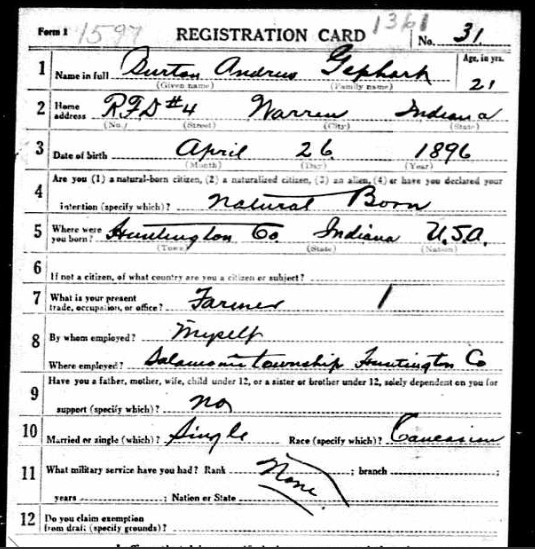 Form 1 1597 REGISTRATION CARD 1361 No. 31
1 Name in full Burton Andrus Gephart Age, in yrs. 21
(Given name) (Family name)
2 Home address R.F.D #4 Warren Indiana
(No.) (Street) (City) (State)
3 Date of birth April 26 1896
(Month) (Day) (Year)
4 Are you (1) a natural-born citizen, (2) a naturalized citizen, (3) an alien, (4) or have you declared your
intention (specify which)? Natural Born
5 Where were you born? Huntington Co. Indiana U.S.A.
(Town) (State) (Nation)
6 If not a citizen, of what country are you a citizen or subject?
7 What is your present trade, occupation, or office? Farmer 1
8 By whom employed? Myself
Where employed? Salamonie township Huntington Co
9 Have you a father, mother, wife, child under 12, or a sister or brother under 12, solely dependent on you for
support (specify which)? no
10 Married or single (which)? Single Race (specify which)? Caucasian
11 What military service have you had? Rank None ; branch ;
years ; Nation or State
12 Do you claim exemption from draft (specify grounds)?